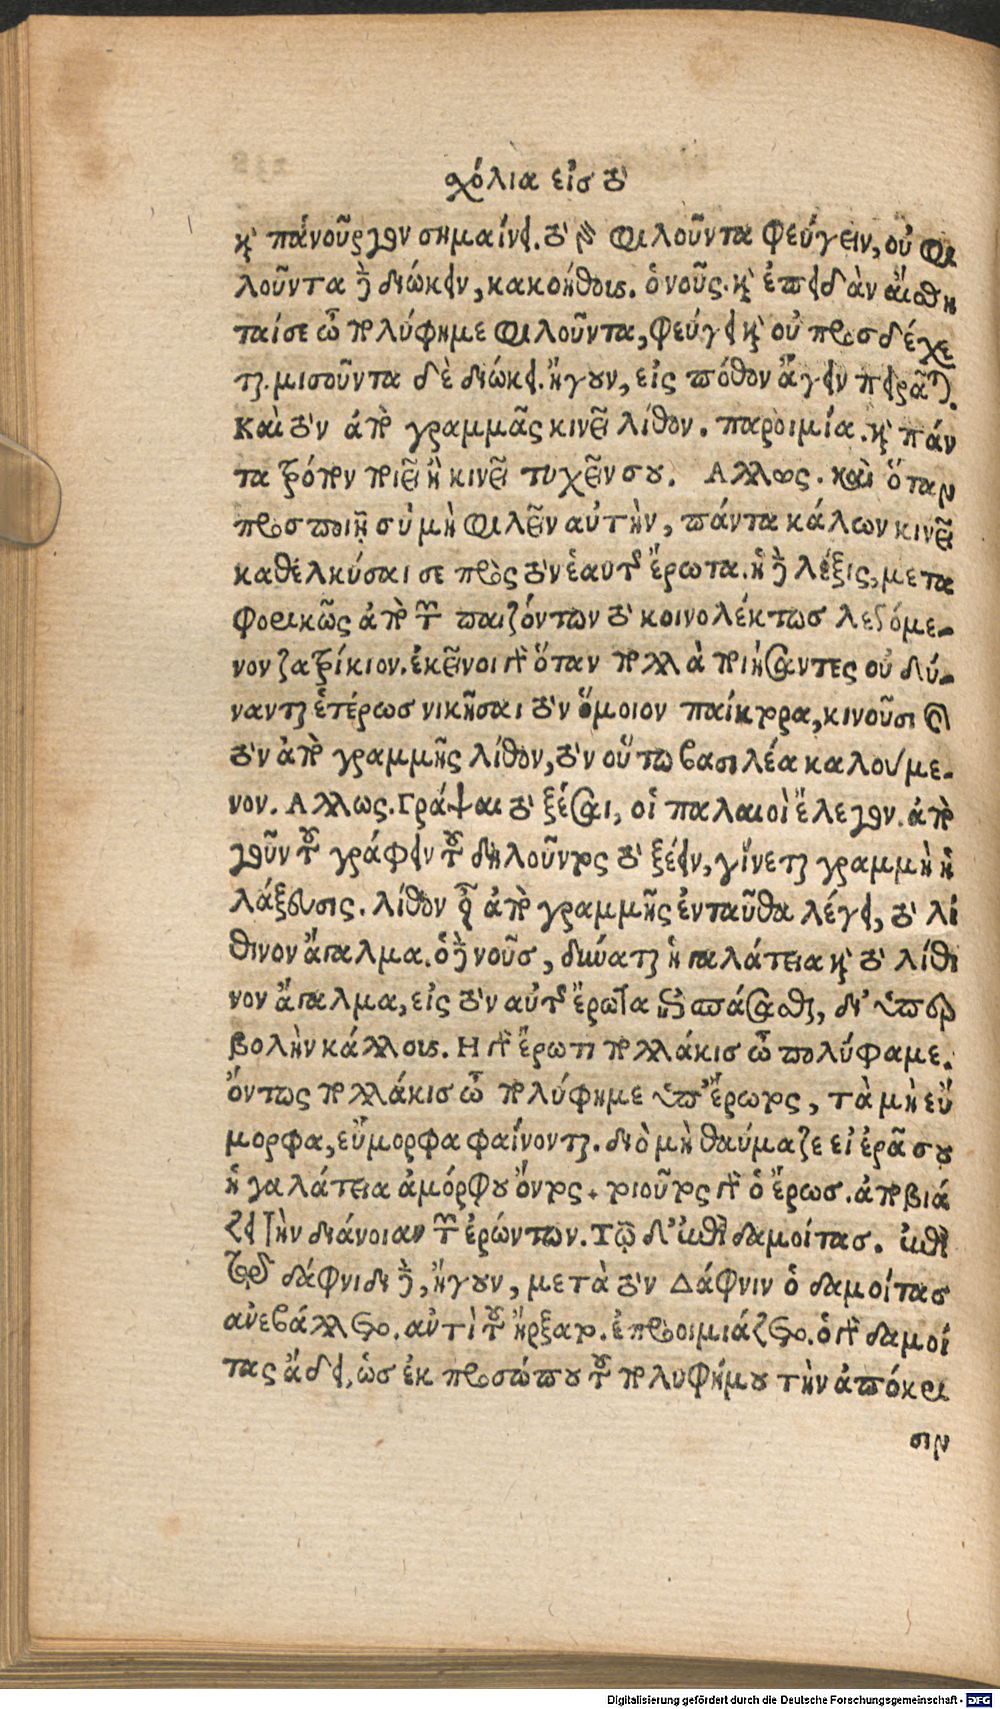 σχόλια εἰς τὸ
καὶ πανοῦργον σημαίνει. τὸ γὰρ φιλοῦντα φεύγειν, οὐ φι
λοῦντα δὲ διώκειν, κακοήθους. ὁ νοῦς. καὶ ἐπειδὰν αἴσθη
ταί σε ὦ πολύφημε φιλοῦντα, φεύγει καὶ οὐ προσδέχε
ται. μισοῦντα δὲ διώκει. ἤγουν, εἰς πόθον ἄγειν πειρᾶται.
Καὶ τὸν ἀπὸ γραμμᾶς κινεῖ λίθον. παροιμία. καὶ πάν
τα τρόπον ποιεῖ ἢ κινεῖ τυχεῖν σου. Αλλως. καὶ ὅταν
προσποιῇ σὺ μὴ φιλεῖν αὐτὴν, πάντα κάλων κινεῖ
καθελκύσαι σε πρὸς τὸν ἑαυτῆς ἔρωτα. ἡ δὲ λέξις, μετα
φορικῶς ἀπὸ τῶν παιζόντων τὸ κοινολέκτως λεγόμε-
νον ζατρίκιον. ἐκεῖνοι γὰρ ὅταν πολλὰ ποιήσαντες οὐ δύ-
νανται ἑτέρως νικῆσαι τὸν ὅμοιον παίκτορα, κινοῦσι καὶ
τὸν ἀπὸ γραμμῆς λίθον, τὸν οὕτω βασιλέα καλούμε-
νον. Αλλως. Γράψαι τὸ ξέσαι, οἱ παλαιοὶ ἔλεγον. ἀπὸ
γοῦν τοῦ γράφειν τοῦ δηλοῦντος τὸ ξέειν, γίνεται γραμμὴ ἡ
λάξευσις. λίθον οὖν ἀπὸ γραμμῆς ἐνταῦθα λέγει, τὸ λί
θινον ἄγαλμα. ὁ δὲ νοῦς, δύναται ἡ γαλάτεια καὶ τὸ λίθι
νον ἄγαλμα, εἰς τὸν αὐτῆς ἔρωτα ἐπισπάσασθαι, δι' ὑπερ
βολὴν κάλλους. Η γὰρ ἔρωτι πολλάκις ὦ πολύφαμε.
ὄντως πολλάκις ὦ πολύφημε ὑπ' ἔρωτος, τὰ μὴ εὔ
μορφα, εὔμορφα φαίνονται. διὸ μὴ θαύμαζε εἰ ἐρᾷ σου
ἡ γαλάτεια ἀμόρφου ὄντος. τοιοῦτος γὰρ ὁ ἔρως. ἀποβιά
ζει τὴν διάνοιαν τῶν ἐρώντων. Τῷ δ' ἐπὶ δαμοίτας. ἐπὶ
τῷ δάφνιδι δὲ, ἤγουν, μετὰ τὸν Δάφνιν ὁ δαμοίτας
ἀνεβάλλετο. ἀντὶ τοῦ ἤρξατο. ἐπροοιμιάζετο. ὁ γὰρ δαμοί
τας ᾄδει, ὡς ἐκ προσώπου τοῦ πολυφήμου τὴν ἀπόκρι
σιν
Digitalisierung gefördert durch die Deutsche Forschungsgemeinschaft - DFG